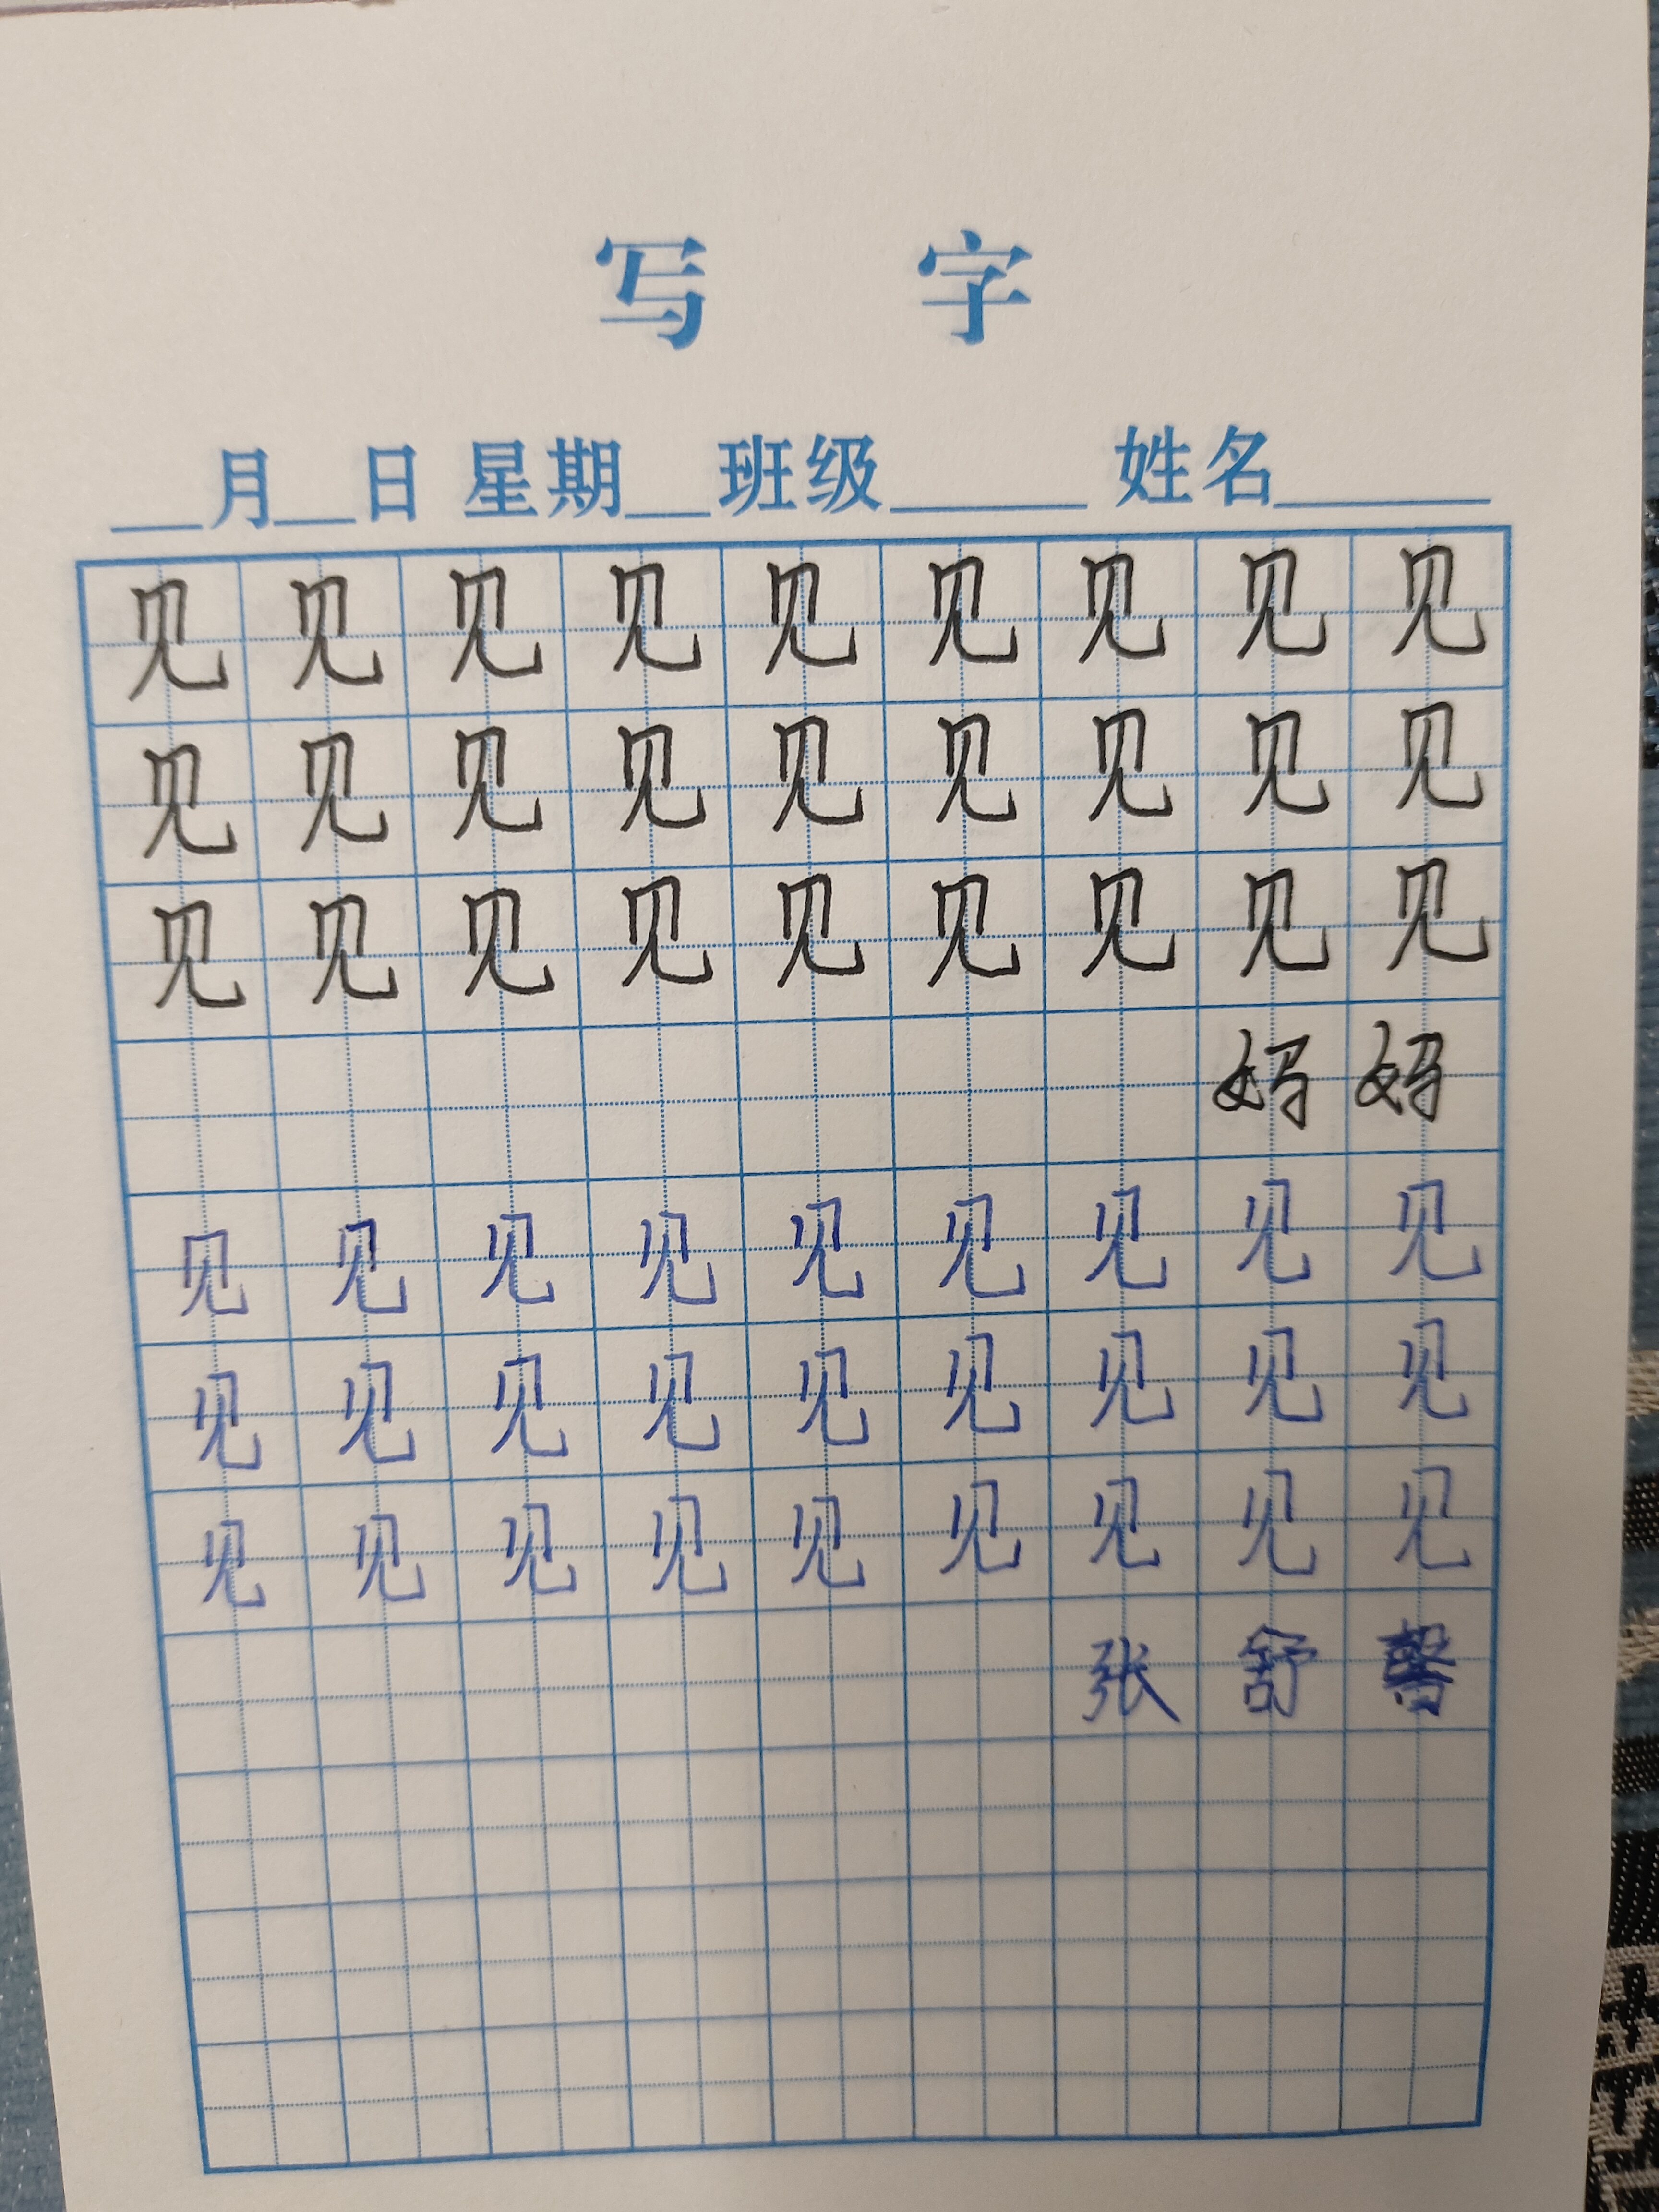 写 字
__月__日 星期__班级____ 姓名____
见 见 见 见 见 见 见 见 见
见 见 见 见 见 见 见 见 见
见 见 见 见 见 见 见 见 见
妈 妈
见 见 见 见 见 见 见 见 见
见 见 见 见 见 见 见 见 见
见 见 见 见 见 见 见 见 见
张 舒 馨